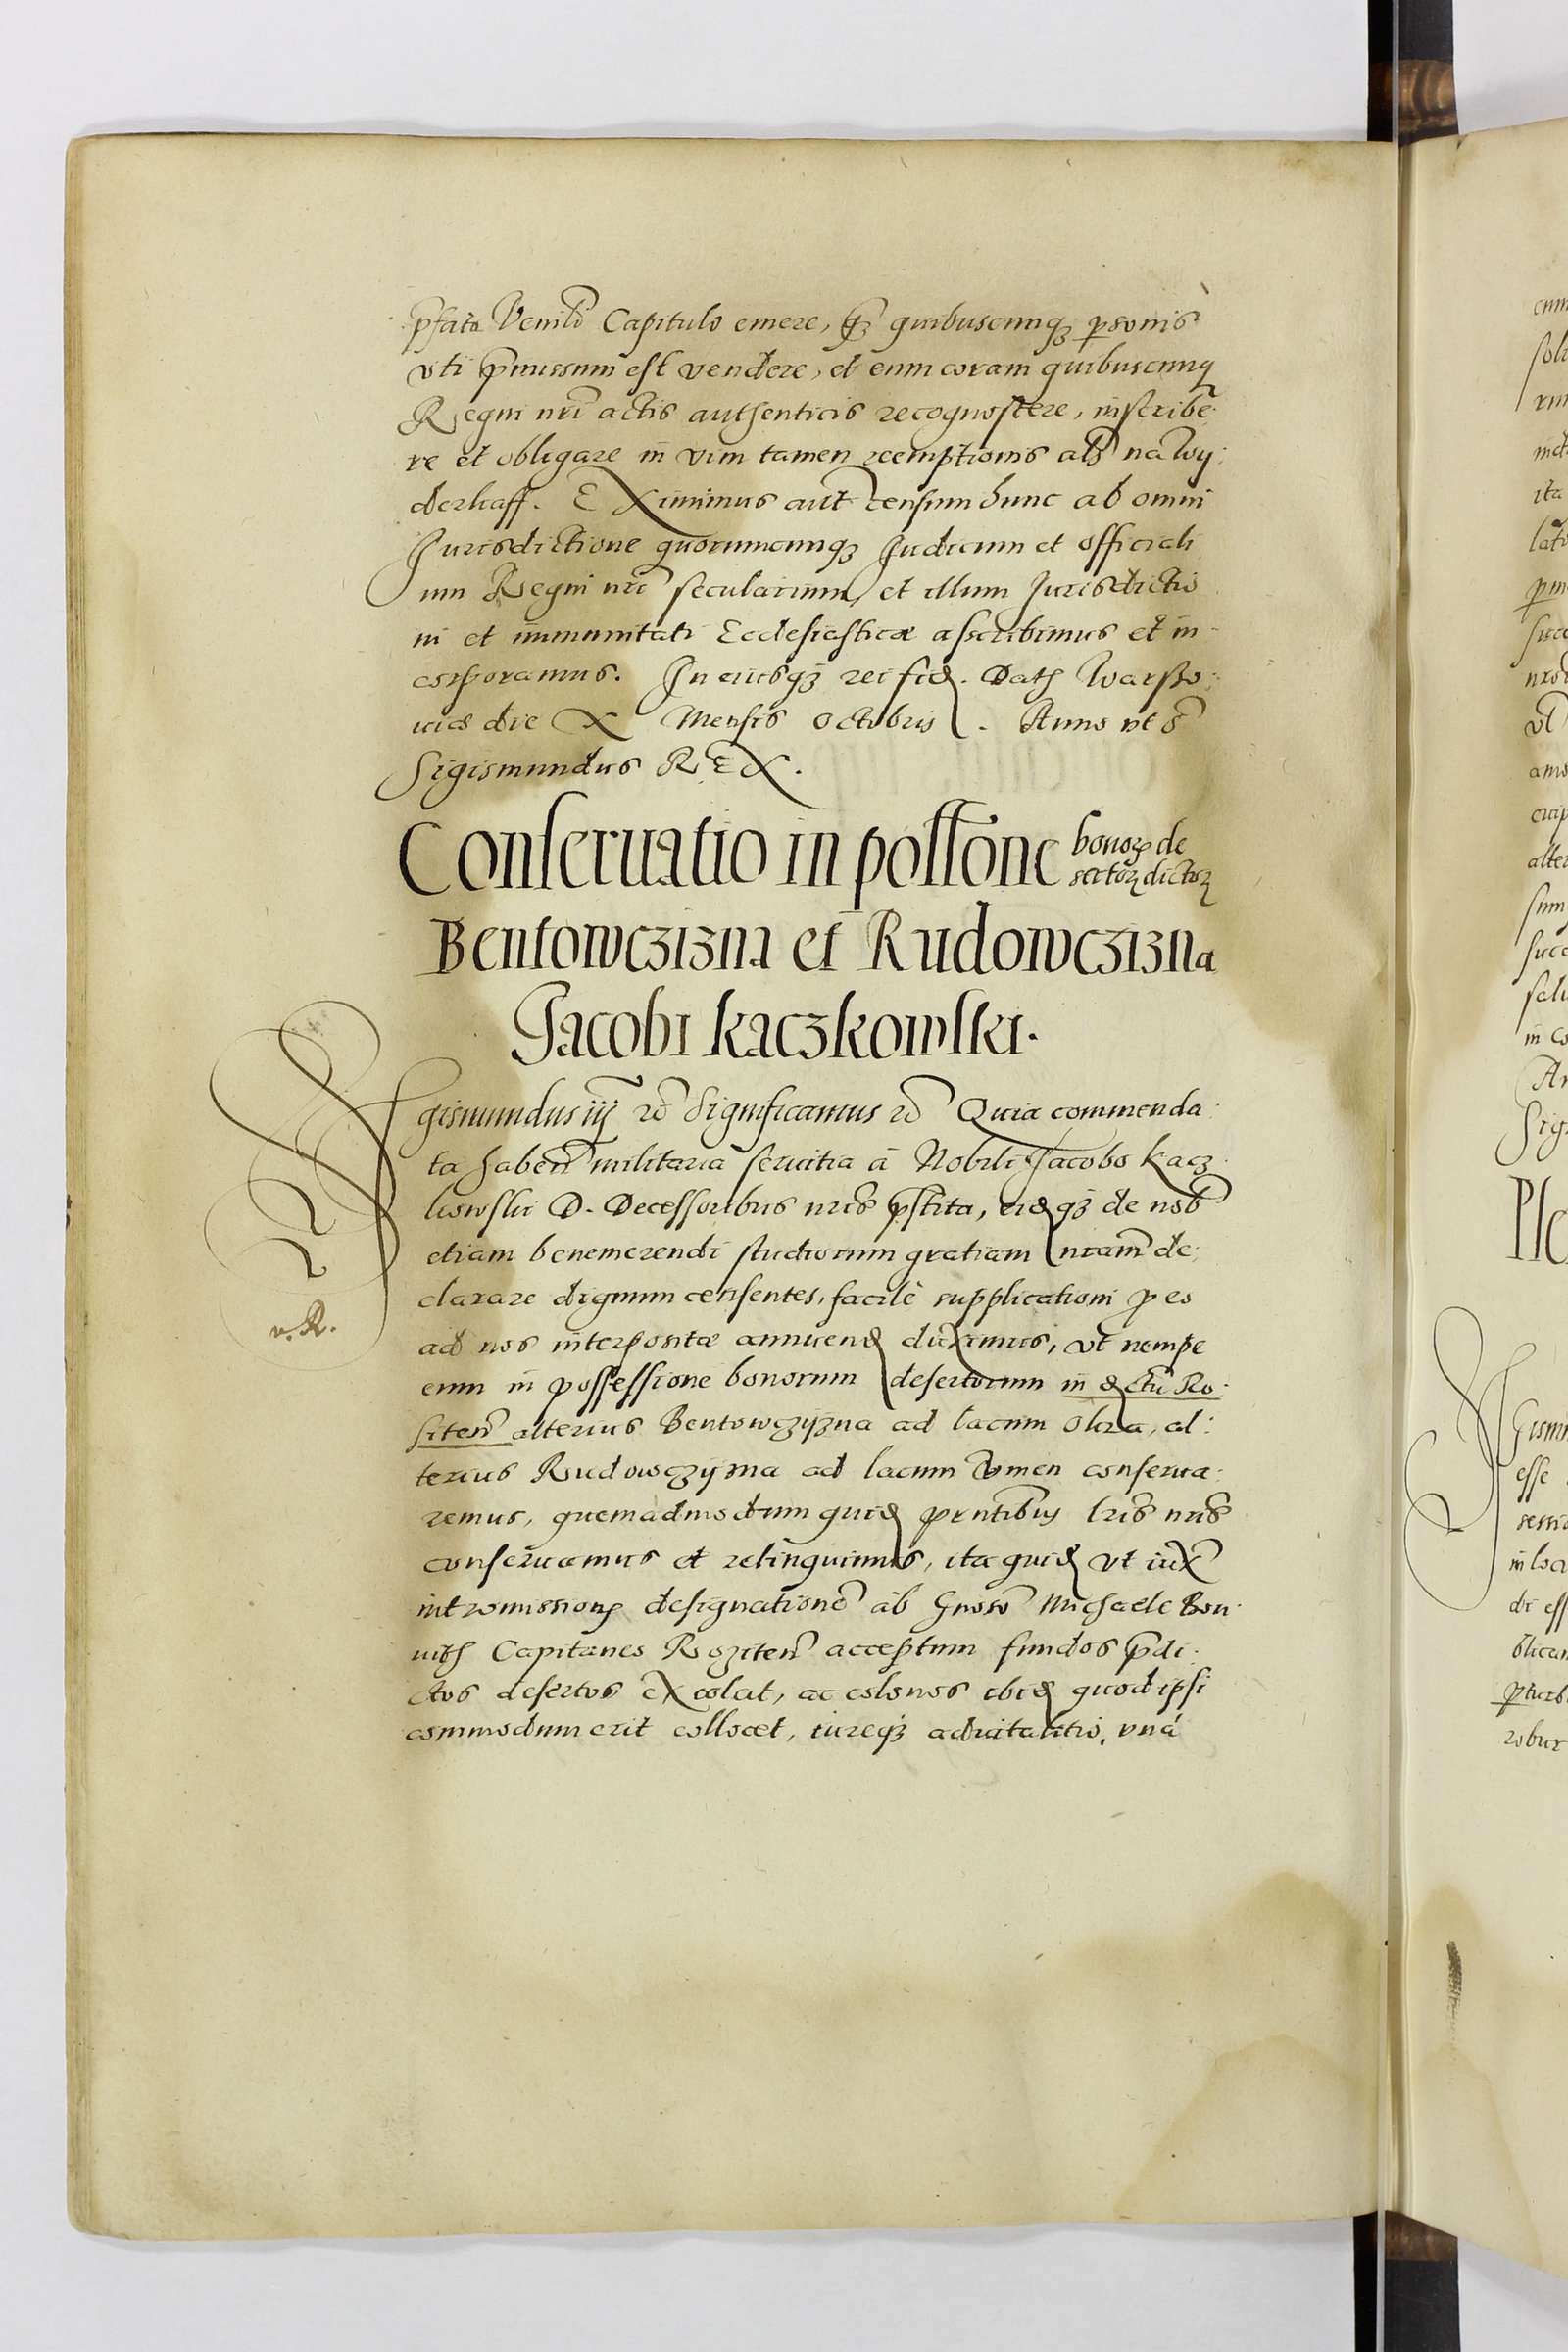 pfato Venli Capitulo emere, qz quibuscunqz psonis
vti pmissum est vendere, et eum coram quibuscunq
Regni nri actis authenticis recognoscere, inscribe
re et obligare in vim tamen reemptionis als na wy
derkaff. EXimimus aut censum hunc ab omni
Jurisdictione quorumcunqz Judicum et officiali
um Regni nri secularium, et illum Jurisdictio
ni et immunitati Ecclesiasticæ asscribimus et in
corporamus. In cuiusqz rei fid. Dat Warsso
uiæ die X Mensis Octobris. Anno vt s
Sigismundus REX.
Conseruatio in possone bonoꝝ de
sertoꝝ dictoꝝ
Bentowczizna et Rudowczizna
Jacobi Kaczkowski.
Sigismundus iij rc Significamus rc Quia commenda
ta haben militaria seruitia á Nobili Jacobo Kacz
kowski D. Decessoribus nris pstita, eidqz de nob
etiam benemerendi studiorum gratiam nram de
clarare dignum censentes, facilè supplicationi p eo
ad nos interpositæ annuend duximus, vt nempe
eum in possessione bonorum desertorum in dctu Ro
siten alterius Bentowczyzna ad lacum Okra, al
terius Rudowczyzna ad lacum Omen conserua
remus, quemadmodum quid pntibus lris nris
conseruamus et relinquimus, ita quid vt iux
intromissionz designatione ab Gnoso Michaele Bon
uith Capitaneo Roziten acceptum fundos pdi
ctos desertos eXcolat, ac colonos ibid quod ipsi
commodum erit collocet, iureqz aduitalitio, vná
v. R.